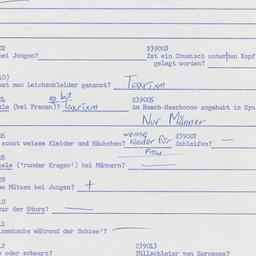 02
bei Jungen?
239003
Ist ein Chumisch unter den Kopf
gelegt worden?
10)
hat man Leichenkleider genannt? Taxrixm
04
(bei Frauen)? Taxrixm
239005
Am Rosch-Haschoono angehabt in Syn
Nur Männer
06
sonst weisse Kleider und Häubchen?
weisse
Kleider für
Frau
239007
Schleifen? —
08
kele ('runder Kragen') bei Männern? —
09
se Mützen bei Jungen? +
10
war der Sturz? —
11
nenhaube während der Schiwe'? —
12
s oder schwarz?
239013
Tüllschleier von Sargenes?